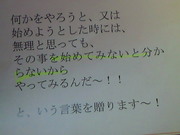 何かをやろうと、又は
始めようとした時には、
無理と思っても、
その事を始めてみないと分か
らないから
やってみるんだ～！！
と、いう言葉を贈ります～！